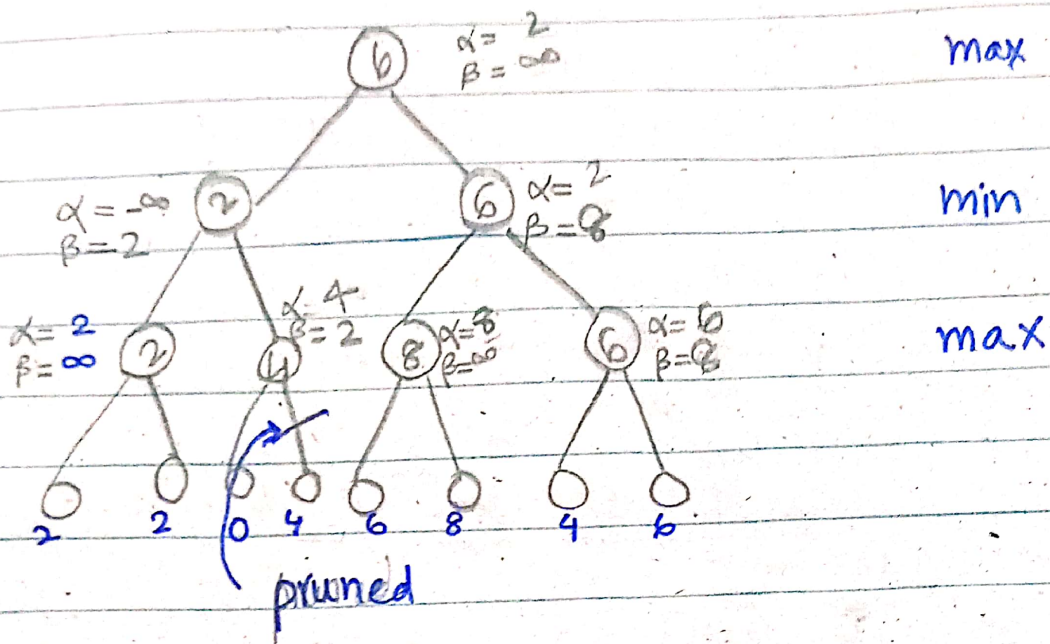 6 α = 2 max
β = ∞
2 α = -∞ β = 2 6 α = 2 β = 8 min
2 α = 2 β = ∞ 4 α = 4 β = 2 8 α = 8 β = ∞ 6 α = 6 β = 8 max
2 2 0 4 6 8 4 6
pruned